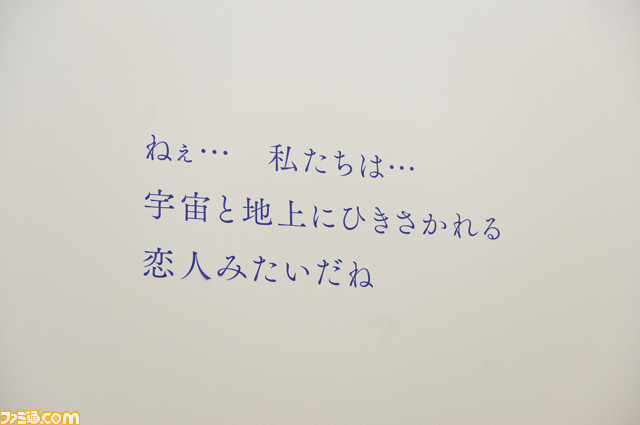 ねぇ… 私たちは…
宇宙と地上にひきさかれる
恋人みたいだね
ファミ通.com